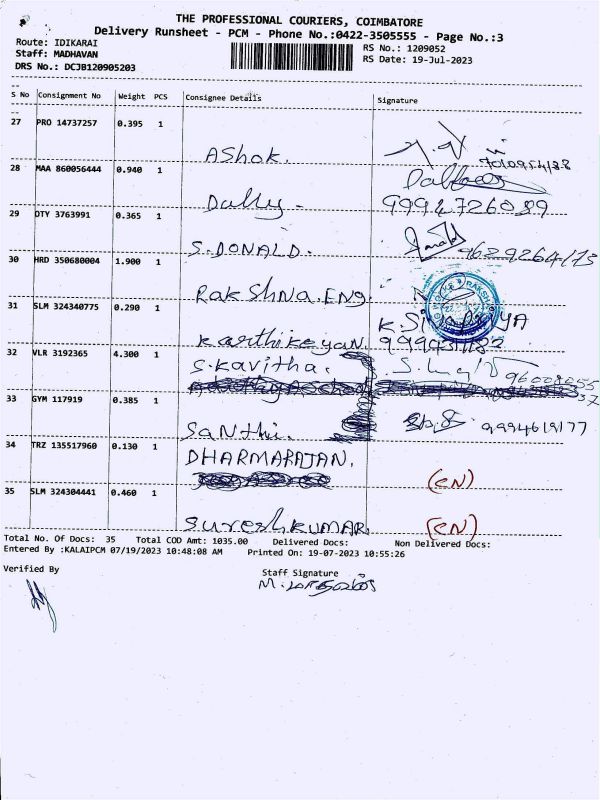 THE PROFESSIONAL COURIERS, COIMBATORE
Delivery Runsheet - PCM - Phone No.:0422-3505555 - Page No.:3
Route: IDIKARAI
RS No.: 1209052
Staff: MADHAVAN
RS Date: 19-Jul-2023
DRS No.: DCJB120905203
S No Consignment No Weight PCS Consignee Details Signature
27 PRO 14737257 0.395 1
Ashok.
28 MAA 860056444 0.940 1
Dally
9994726089
29 DTY 3763991 0.365 1
S.DONALD.
9629264173
30 HRD 350680004 1.900 1
RakShna.Eng.
31 SLM 324340775 0.290 1
K.SIVAPRIYA
Karthikeyan.
32 VLR 3192365 4.300 1
S.Kavitha.
33 GYM 117919 0.385 1
Santhi.
9994619177
34 TRZ 135517960 0.130 1
DHARMARAJAN.
(CN)
35 SLM 324304441 0.460 1
SureshKUMAR.
(CN)
Total No. Of Docs: 35 Total COD Amt: 1035.00 Delivered Docs: Non Delivered Docs:
Entered By :KALAIPCM 07/19/2023 10:48:08 AM Printed On: 19-07-2023 10:55:26
Verified By
Staff Signature